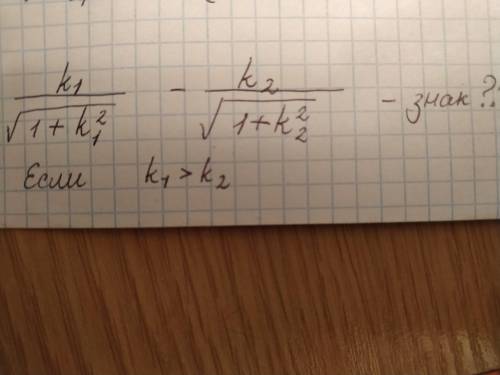 k₁/√(1 + k₁²) - k₂/√(1 + k₂²) - знак ?
Если k₁ > k₂